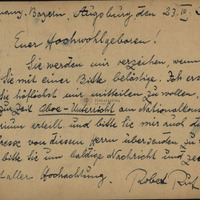 Bayern, Augsburg den 23. IV
Euer Hochwohlgeboren!
Sie werden mir verzeihen, wenn
Sie mit einer Bitte belästige. Ich
Sie höflichst mir mitteilen zu wollen
zur Zeit Oboe-Unterricht am Nationalkons
rium erteilt und bitte Sie mir auch die
resse von diesem Herrn übersenden zu
bitte Sie um baldige Nachricht und
aller Hochachtung.
Robert